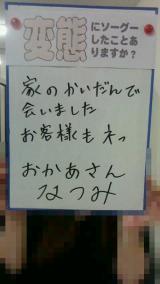 変態にソーグー
したことあ
りますか?
家のかいだんで
会いました
お客様もネっ
おかあさん
なつみ